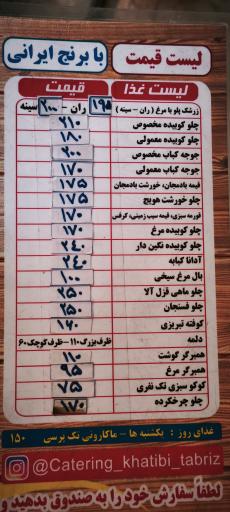 لیست قیمت با برنج ایرانی
لیست غذا قیمت
زرشک پلو با مرغ (ران - سینه) ران - ۱۹۵ سینه ۲۰۰
چلو کوبیده مخصوص ۲۱۰
چلو کوبیده معمولی ۱۸۰
جوجه کباب مخصوص ۲۰۰
جوجه کباب معمولی ۱۷۰
قیمه بادمجان، خورشت بادمجان ۱۷۵
چلو خورشت هویج ۱۷۵
قورمه سبزی، قیمه سیب زمینی، کرفس ۱۷۰
چلو کوبیده مرغ ۱۷۰
چلو کوبیده نگین دار ۲۴۰
آدانا کبابه ۲۴۰
بال مرغ سیخی ۱۰۰
چلو ماهی قزل آلا ۲۵۰
چلو فسنجان ۲۵۰
کوفته تبریزی ۱۲۰
دلمه ظرف بزرگ ۱۱۰ - ظرف کوچک ۶۰
همبرگر گوشت ۱۱۰
همبرگر مرغ ۹۵
کوکو سبزی تک نفری ۷۵
چلو چرخکرده ۱۷۰
غذای روز : یکشنبه ها - ماکارونی تک پرسی ۱۵۰
@Catering_khatibi_tabriz
لطفا سفارش خود را به صندوق بدهید و